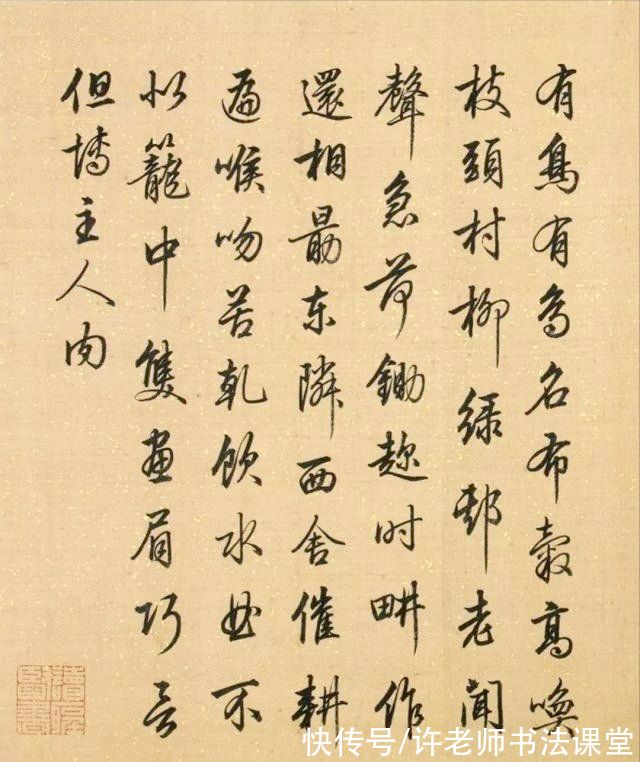 有鳥有鳥名布穀高喚
枝頭村柳綠老聞
聲急荷鋤趂时畊作
還相勗东隣西舍催耕
遍喉吻苦乾飲水曲不
似籠中隻畫眉巧言
但博主人肉
快传号/许老师书法课堂